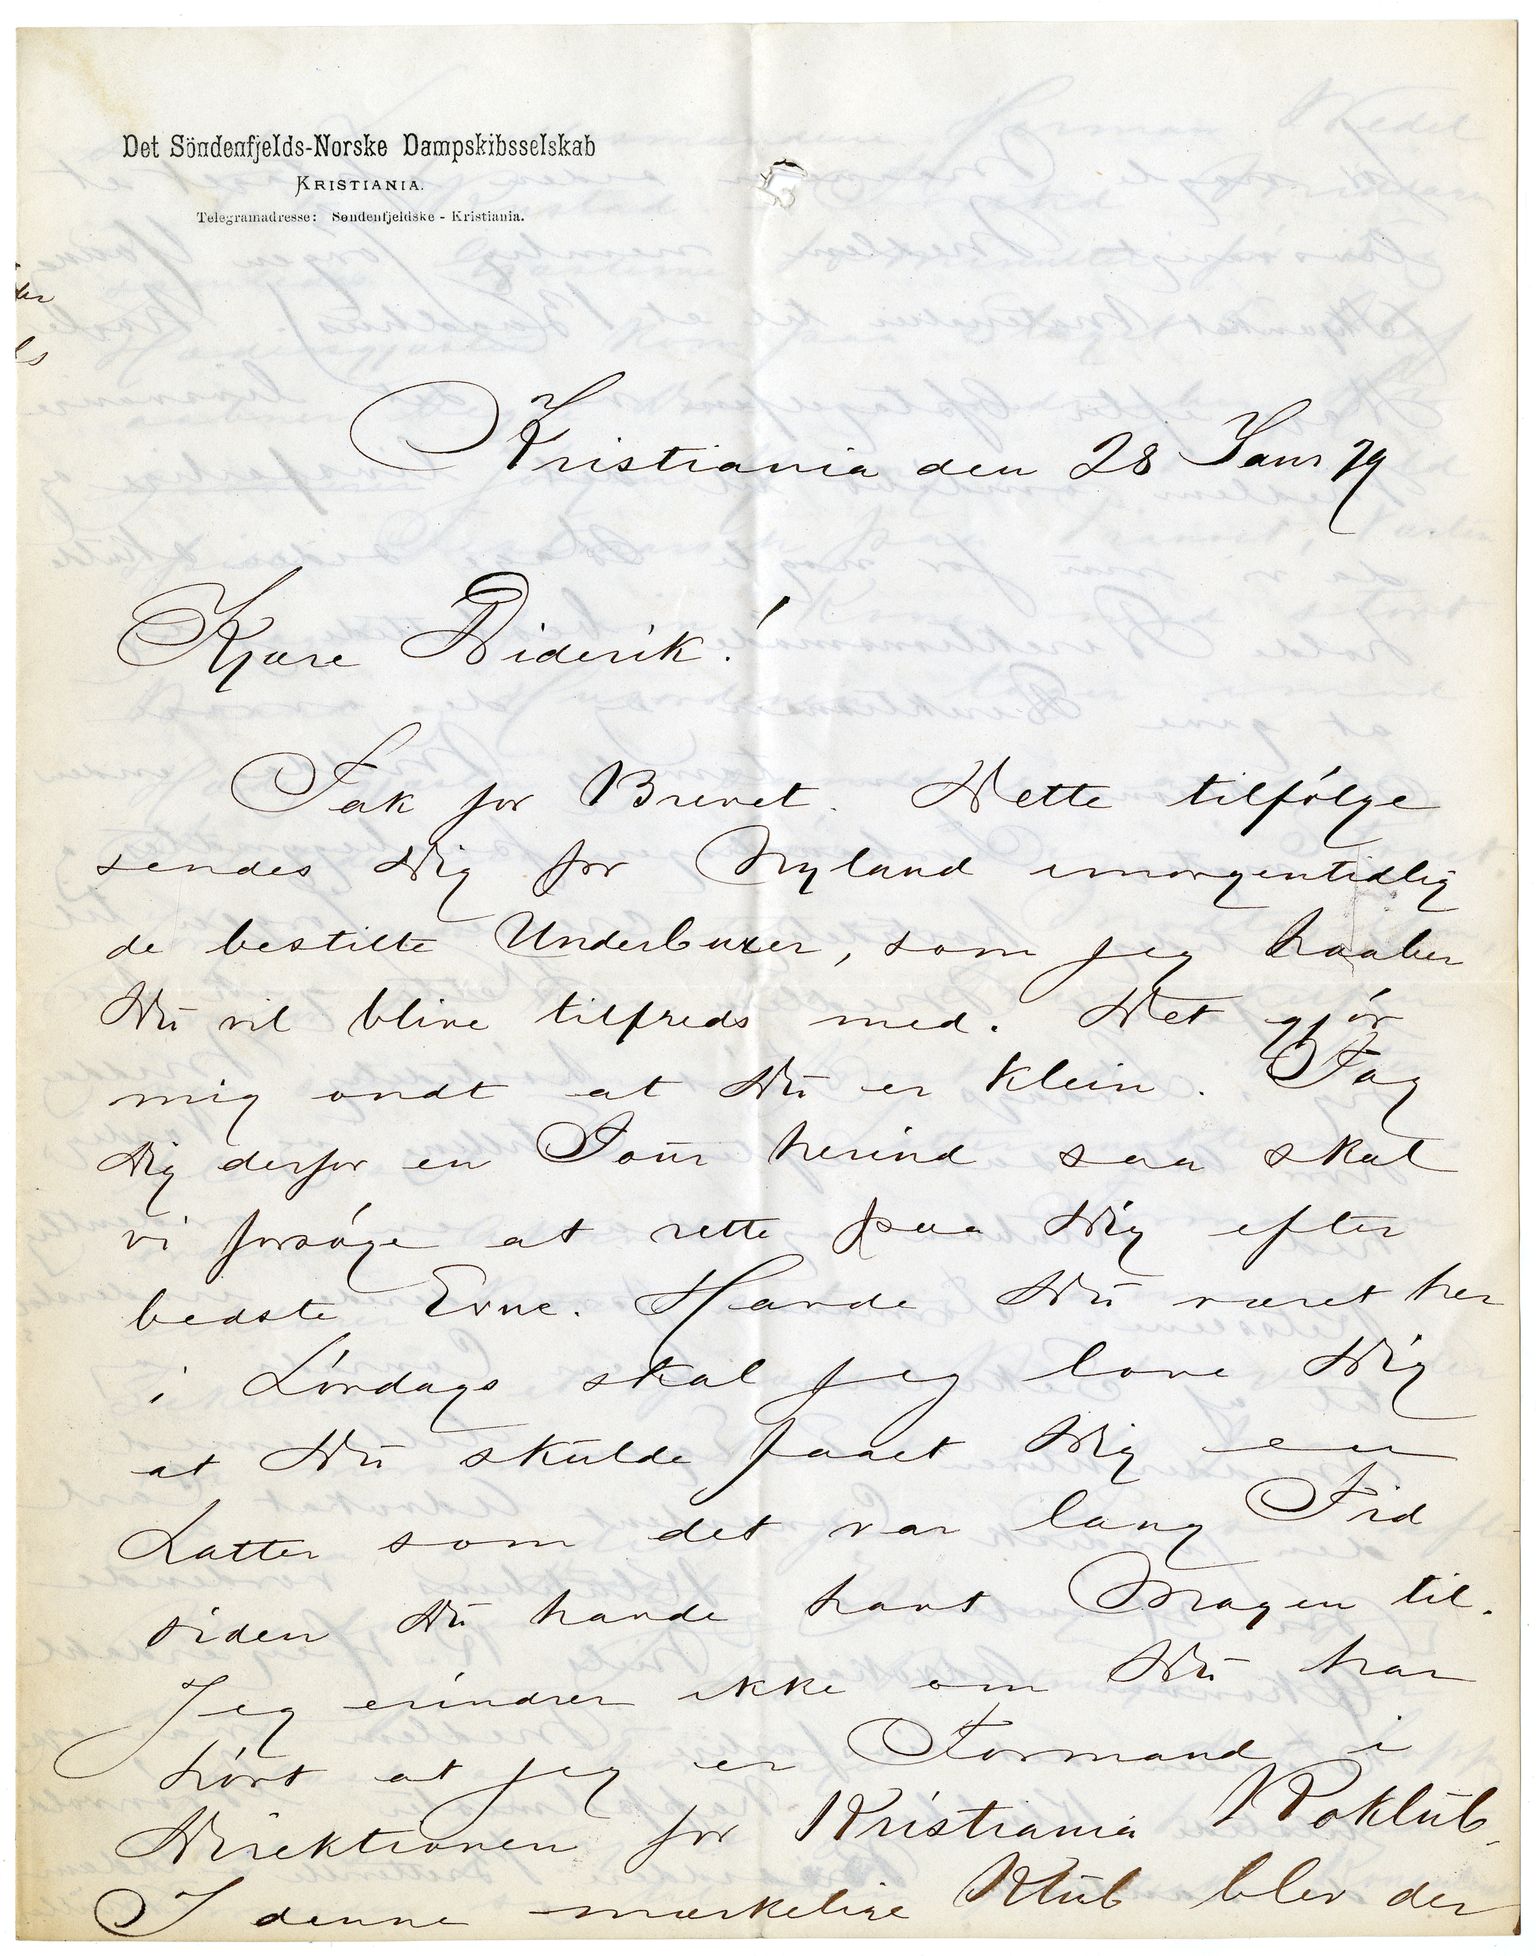 Det Söndenfjelds-Norske Dampskibsselskab
KRISTIANIA.
Telegramadresse: Søndenfjeldske - Kristiania.
Kristiania den 28 Janr 79
Kjære Diderik!
Tak for Brevet. Dette tilfølge
sendes Dig for Nyland imorgentidlig
de bestilte Underbuxer, som jeg haaber
Du vil blive tilfreds med. Det gjør
mig ondt at Du er klein. Tag
Dig derfor en Tour herind saa skal
vi forsøge at rette paa Dig efter
bedste Evne. Havde Du været her
i Lørdags skal jeg love Dig
at Du skulde faaet Dig en
Latter som det var lang Tid
siden Du havde havt Magen til.
Jeg erindrer ikke om Du har
hørt at jeg er Formand i
Direktionen for Kristiania Roklub.
I denne mærkelige Klub blev der